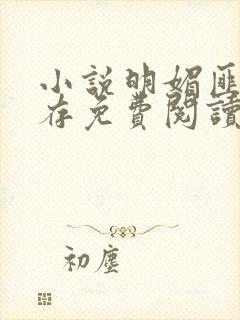 小說明媚匪
存免費閱讀
初塵